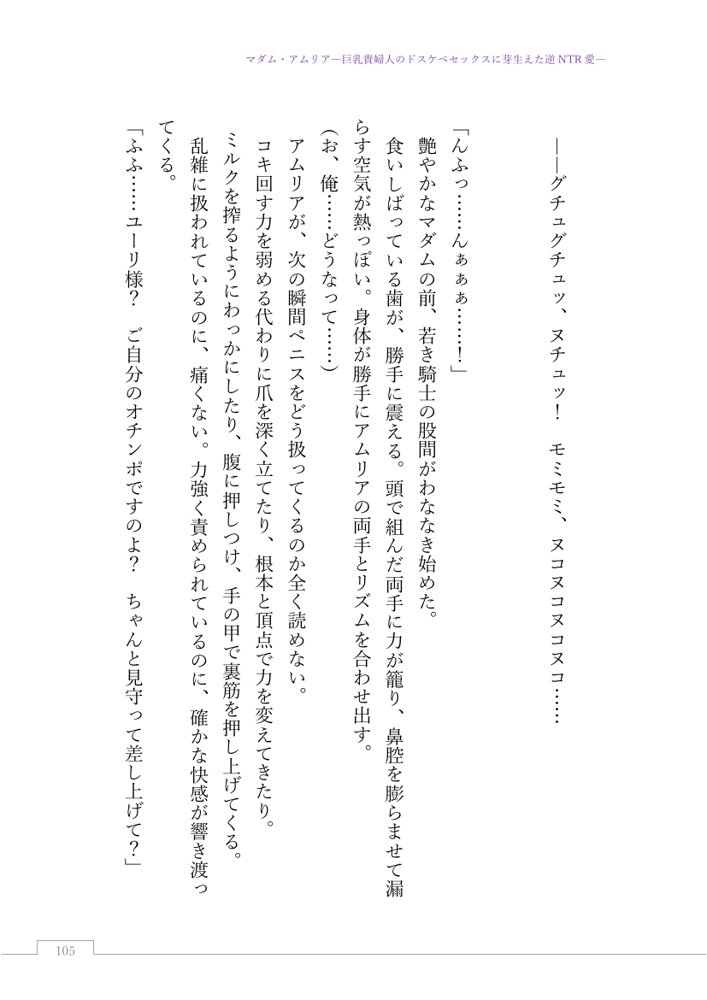 マダム・アムリア―巨乳貴婦人のドスケベセックスに芽生えた逆NTR愛―
――グチュグチュッ、ヌチュッ！　モミモミ、ヌコヌコヌコヌコ……
「んふっ……んぁぁぁ……！」
艶やかなマダムの前、若き騎士の股間がわななき始めた。
食いしばっている歯が、勝手に震える。頭で組んだ両手に力が籠り、鼻腔を膨らませて漏
らす空気が熱っぽい。身体が勝手にアムリアの両手とリズムを合わせ出す。
（お、俺……どうなって……）
アムリアが、次の瞬間ペニスをどう扱ってくるのか全く読めない。
コキ回す力を弱める代わりに爪を深く立てたり、根本と頂点で力を変えてきたり。
ミルクを搾るようにわっかにしたり、腹に押しつけ、手の甲で裏筋を押し上げてくる。
乱雑に扱われているのに、痛くない。力強く責められているのに、確かな快感が響き渡っ
てくる。
「ふふ……ユーリ様？　ご自分のオチンポですのよ？　ちゃんと見守って差し上げて？」
105